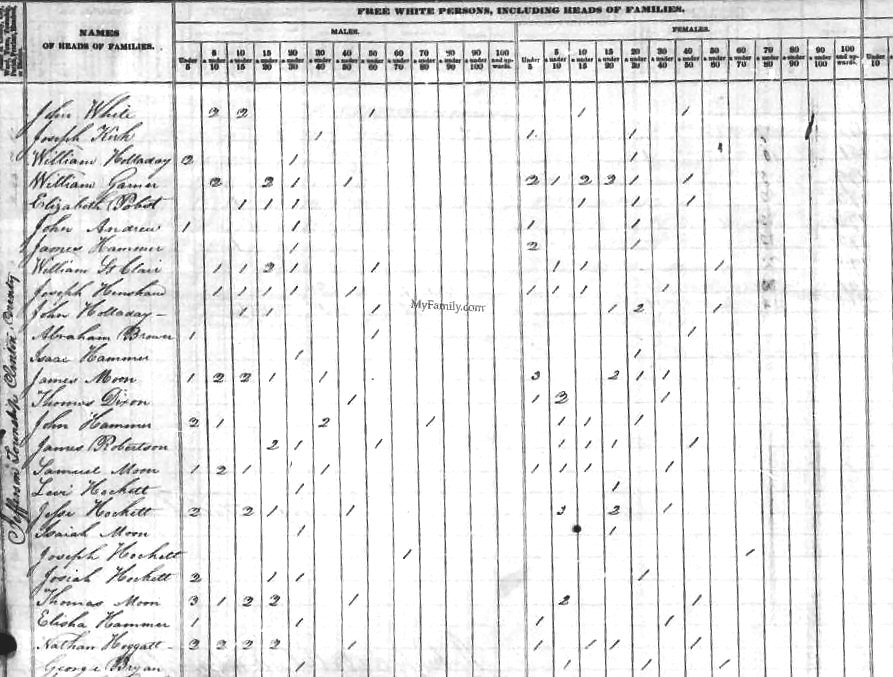 FREE WHITE PERSONS, INCLUDING HEADS OF FAMILIES.
NAMES
OF HEADS OF FAMILIES.
MALES.
FEMALES.
Under 5 | 5 & under 10 | 10 & under 15 | 15 & under 20 | 20 & under 30 | 30 & under 40 | 40 & under 50 | 50 & under 60 | 60 & under 70 | 70 & under 80 | 80 & under 90 | 90 & under 100 | 100 and upwards. | Under 5 | 5 & under 10 | 10 & under 15 | 15 & under 20 | 20 & under 30 | 30 & under 40 | 40 & under 50 | 50 & under 60 | 60 & under 70 | 70 & under 80 | 80 & under 90 | 90 & under 100 | 100 and upwards. | Under 10
Jefferson Township Clinton County
John White 2 2 1 1 1
Joseph Kirk 1 1 1
William Holladay 2 1 1
William Garner 2 2 1 1 2 1 2 2 1 1
Elizabeth 1 1 1 1 1 1
John Andrew 1 1 1 1
James Hammer 1 2 1
William St Clair 1 1 2 1 1 1 1 1
Joseph Henshaw 1 1 1 1 1 1 1 1 1
John Holladay 1 1 1 1 2 1
MyFamily.com
Abraham Brower 1 1 1
Isaac Hammer 1 1
James Moon 1 2 2 1 1 3 2 1 1
Thomas Dixon 1 1 1
John Hammer 2 1 2 1 1 1 1
James Robertson 2 1 1 1 1 1 1
Samuel Moon 1 2 1 1 1 1 1 1
Levi Hockett 1 1
Jesse Hockett 2 2 1 1 3 2 1
Isaiah Moon 1 1
Joseph Hockett 1 1
Josiah Hockett 2 1 1 1
Thomas Moon 3 1 2 2 1 2 1
Elisha Hammer 1 1 1 1
Nathan Hoggatt 2 2 2 1 1 1 1 1
George Bryan 1 1 1 1